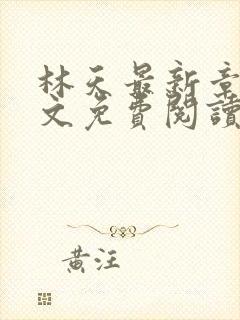 林天最新章
文免費閱讀
黃汪